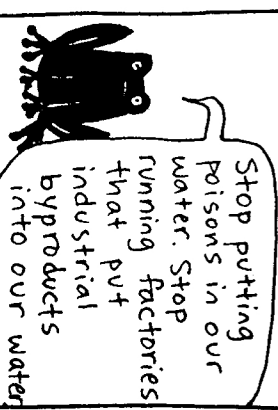 Stop putting
poisons in our
water. Stop
running factories
that put
industrial
byproducts
into our water